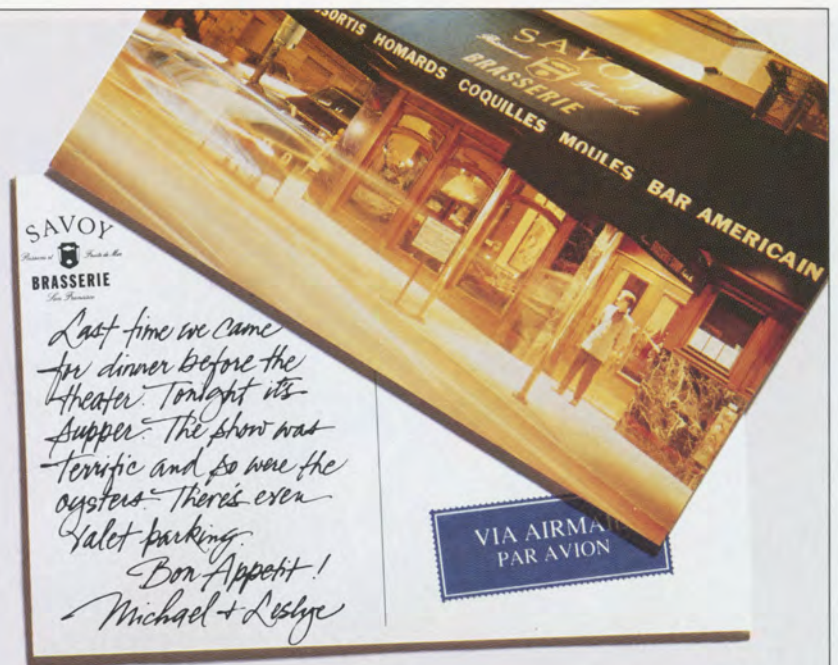 SSORTIS HOMARDS COQUILLES MOULES BAR AMERICAIN
SAVOY
BRASSERIE
SAVOY
Poissons et Fruits de Mer
BRASSERIE
San Francisco
Last time we came
for dinner before the
theater. Tonight it's
supper. The show was
terrific and so were the
oysters. There's even
valet parking.
Bon Appetit!
Michael + Leslye
VIA AIRMAI
PAR AVION